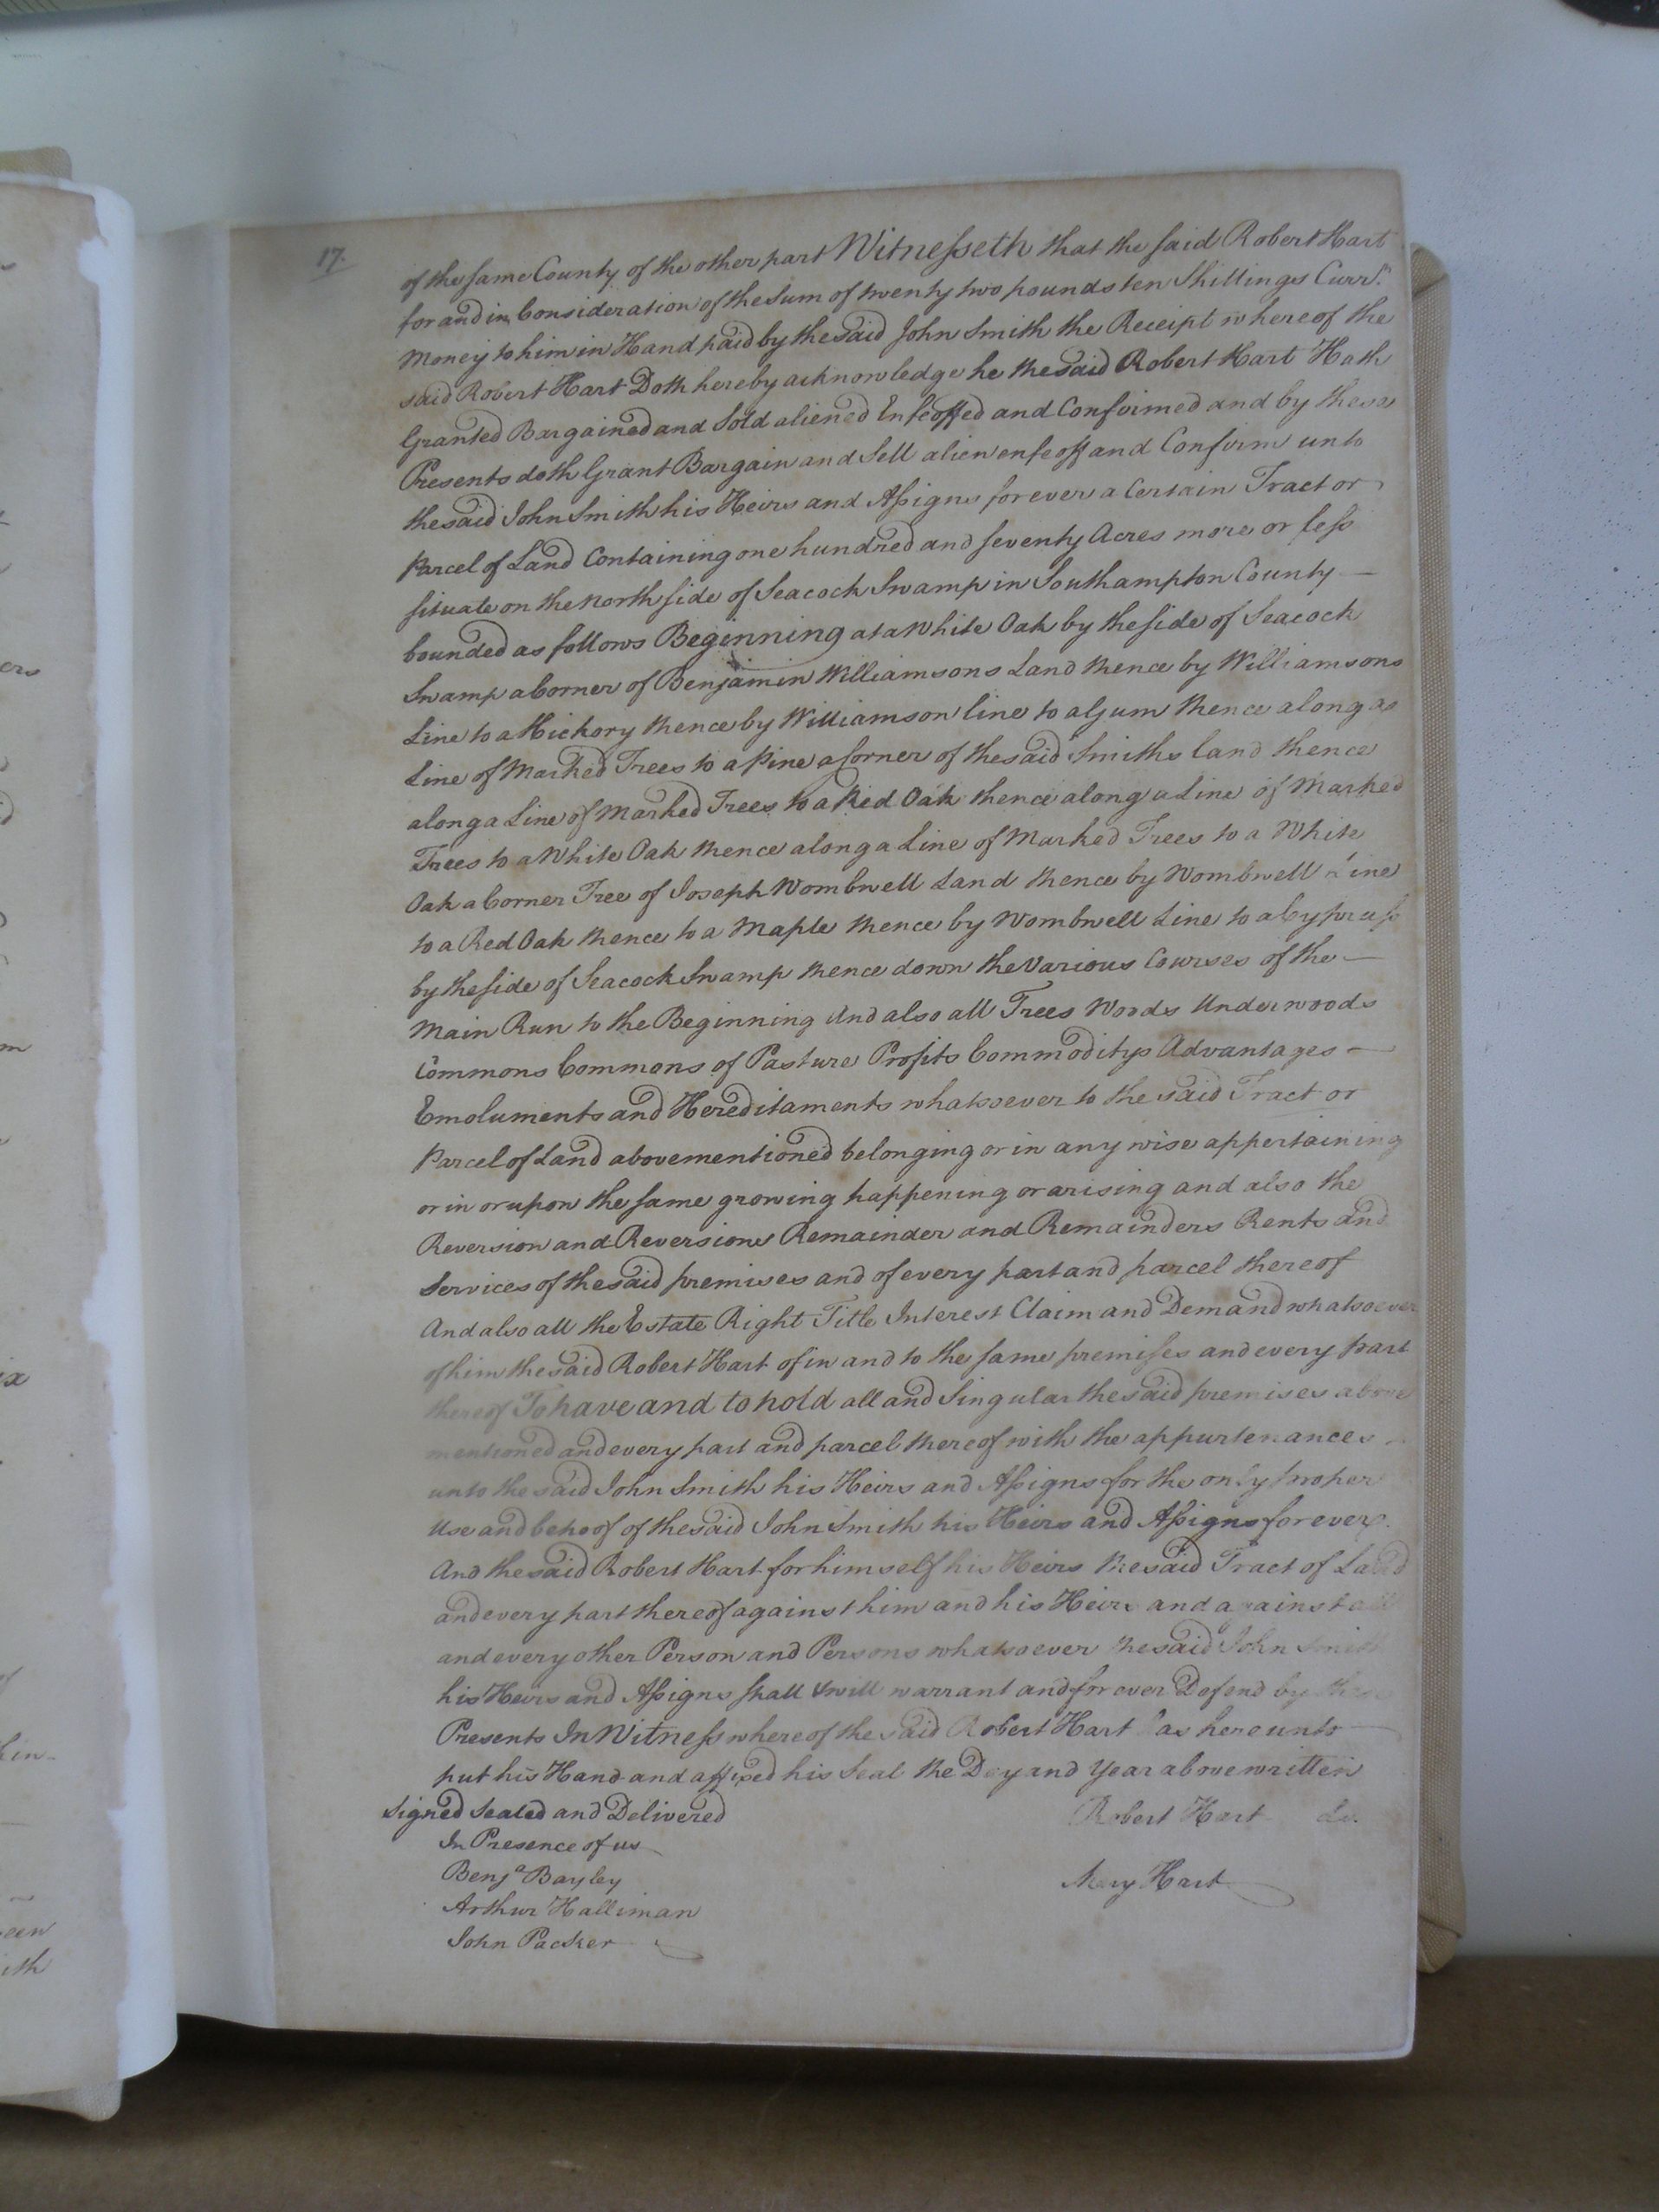 17.
of the same County of the other part Witnesseth that the said Robert Hart
for and in Consideration of the Sum of twenty two pounds ten Shillings Curr.t
Money to him in Hand paid by the said John Smith the Receipt whereof the
said Robert Hart Doth hereby acknowledge he the said Robert Hart Hath
Granted Bargained and Sold aliened Enfeoffed and Confirmed and by these
Presents doth Grant Bargain and Sell alien enfeoff and Confirm unto
the said John Smith his Heirs and Assigns for ever a Certain Tract or
Parcel of Land Containing one hundred and seventy Acres more or less
situate on the North side of Seacock Swamp in Southampton County —
bounded as follows Beginning at a White Oak by the side of Seacock
Swamp a Corner of Benjamin Williamsons Land thence by Williamsons
Line to a Hickory thence by Williamson line to a Gum thence along a
Line of Marked Trees to a Pine a Corner of the said Smiths land thence
along a Line of Marked Trees to a Red Oak thence along a Line of Marked
Trees to a White Oak thence along a Line of Marked Trees to a White
Oak a Corner Tree of Joseph Wombwell Land thence by Wombwell Line
to a Red Oak thence to a Maple thence by Wombwell Line to a Cypruss
by the side of Seacock Swamp thence down the Various Courses of the —
Main Run to the Beginning And also all Trees Woods Underwoods
Commons Commons of Pasture Profits Commoditys Advantages —
Emoluments and Hereditaments whatsoever to the said Tract or
Parcel of Land abovementioned belonging or in any wise appertaining
or in or upon the same growing happening or arising and also the
Reversion and Reversions Remainder and Remainders Rents and
Services of the said premises and of every part and parcel thereof
And also all the Estate Right Title Interest Claim and Demand whatsoever
of him the said Robert Hart of in and to the same premises and every part
thereof To have and to hold all and Singular the said premises above
mentioned and every part and parcel thereof with the appurtenances
unto the said John Smith his Heirs and Assigns for the only proper
Use and behoof of the said John Smith his Heirs and Assigns for ever.
And the said Robert Hart for himself his Heirs the said Tract of Land
and every part thereof against him and his Heirs and against all
and every other Person and Persons whatsoever the said John Smith
his Heirs and Assigns shall & will warrant and for ever Defend by these
Presents In Witness whereof the said Robert Hart has hereunto —
put his Hand and affixed his Seal the Day and Year above written
Signed Sealed and Delivered Robert Hart
In Presence of us
Benj.a Bayley Mary Hart
Arthur Halliman
John Packer